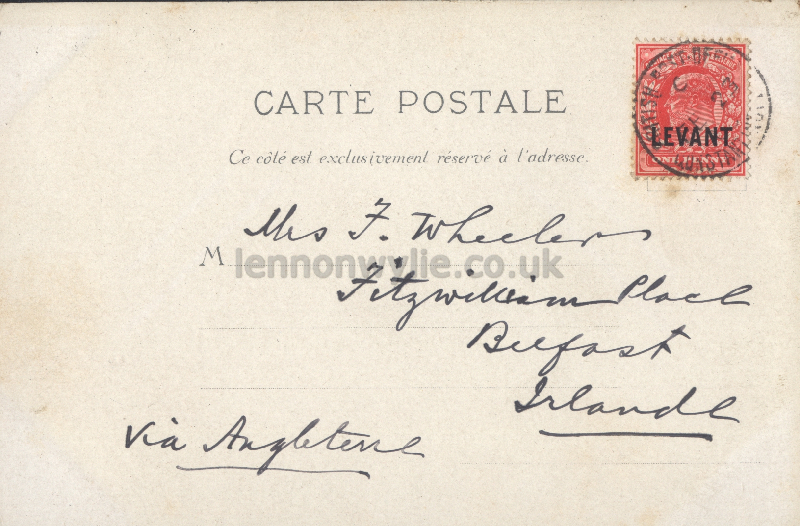 CARTE POSTALE
Ce côté est exclusivement réservé à l'adresse.
LEVANT
ONE PENNY
Mrs F. Wheeler
M
lennonwylie.co.uk
Fitzwilliam Place
Belfast
Irlande
via Angleterre